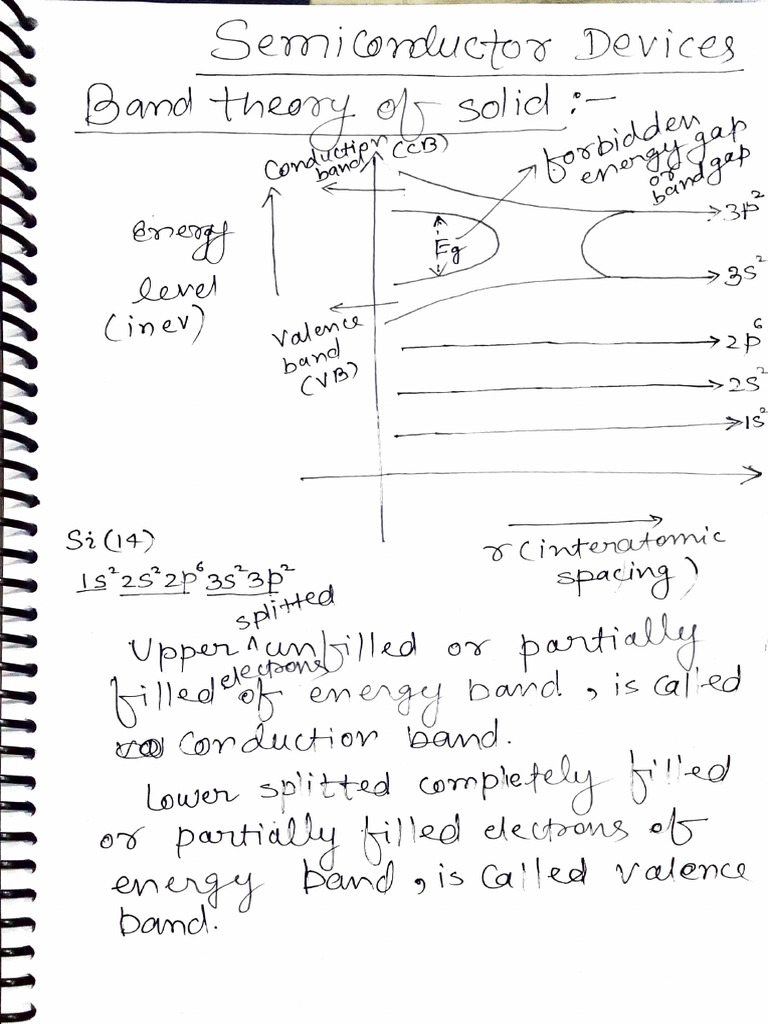 Semiconductor Devices
Band theory of solid :-
Conduction band (CB)
forbidden energy gap or band gap
Energy level (in ev)
Eg
3p²
3s²
Valence band (VB)
2p⁶
2s²
1s²
r (interatomic spacing)
Si (14)
1s² 2s² 2p⁶ 3s² 3p²
splitted
Upper ^ unfilled or partially
electrons
filled of energy band, is called
conduction band.
Lower splitted completely filled
or partially filled electrons of
energy band, is called valence
band.